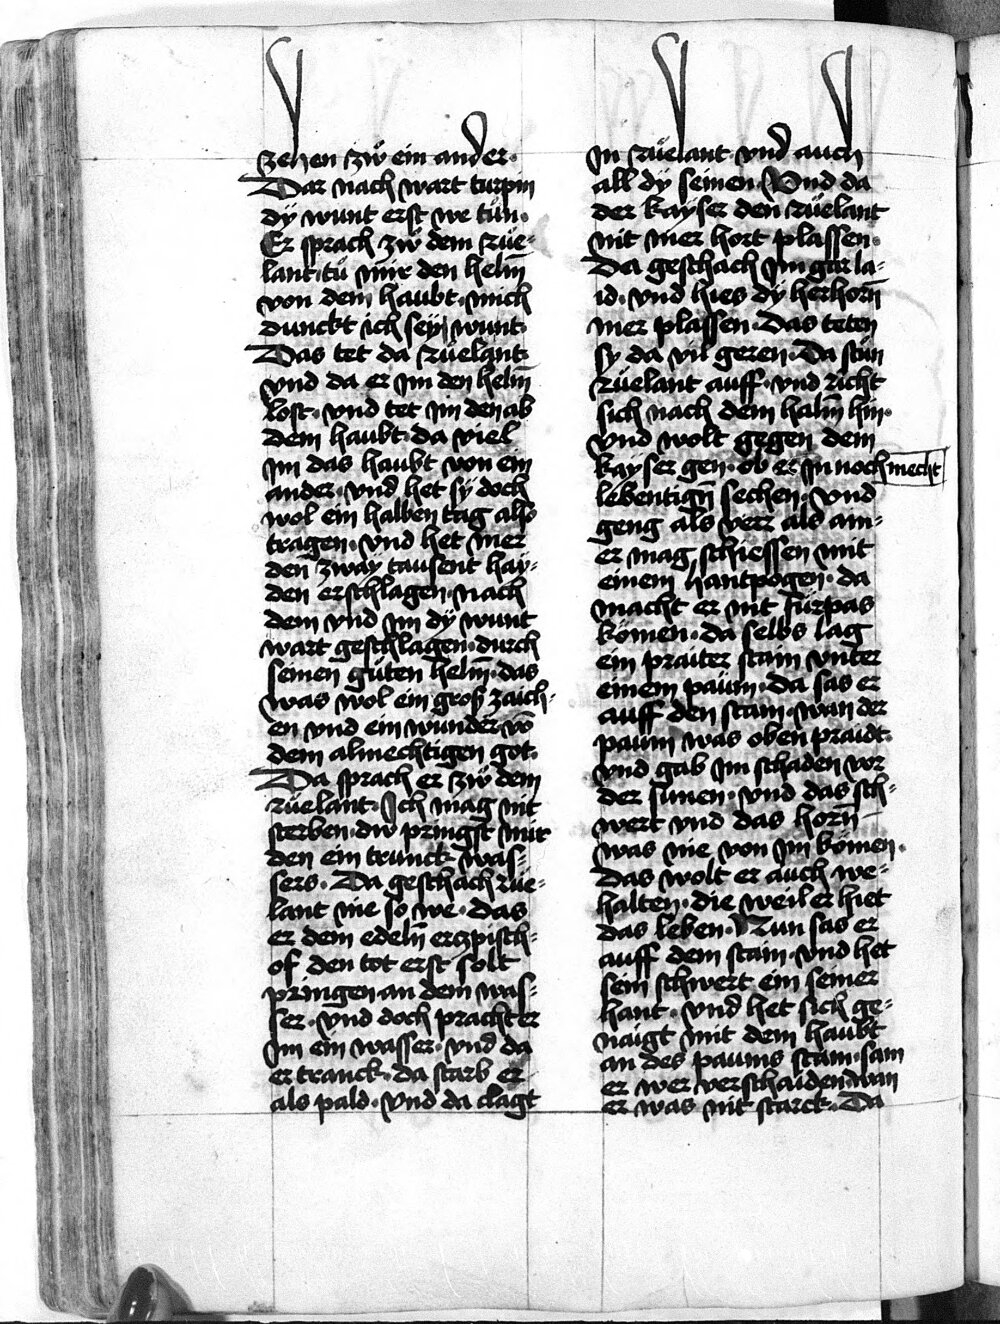 zehen zw ein ander·
Dar nach wart turpin
dy wunt erst we tün·
Er sprach zw dem rüe-
lant· tü mir den helm̄
von dem haubt· mich
dunckt ich sey wunt·
Das tet da rüelant·
vnd da er jm den helm̄
lost· vnd tet jm den ab
dem haubt· da viel
jm das haubt von ein
ander· vnd het sy doch
wol ein halben tag also
tragen· vnd het mer
den̄ zway tausent hay-
den erschlagen· nach
dem vnd jm dy wunt
wart geschlagen· durch
seinen güten helm̄· das
was wol ein groß zaich-
en vnd ein wunder vō
dem almechtigen got·
Da sprach er zw dem
rüelant· Ich mag nit
sterben· dw pringst mir
den ein trunck was-
sers· Da geschach rüe-
lant nie so we· das
er dem edeln̄ erczpisch-
of den tot erst solt
pringen an dem was-
ser· vnd doch pracht er
jm ein wasser· vnd da
er tranck· da starb er
als pald· vnd da clagt
jn rüelant vnd auch
all dy seinen· Vnd da
der kayser den rüelant
nit mer hort plassen·
Da geschach jm gar la-
id· vnd hies dy herhorn̄
mer plassen· Das teten
sy da vil geren· Da stün
rüelant auff· vnd richt
sich nach dem halm̄ hin·
vnd wolt gegen dem
kayser gen· ob er jn noch mecht
lebentign̄ sechen· vnd
geng als verr als ain-
er mag schiessen mit
einem hantpogen· da
macht er nit fürpas
kömen· da selbs lag
ein praiter stain vnter
einem paüm· da sas er
auff den stain· wan der
paum was oben praidt·
vnd gab jm schaden vor
der sunen· vnd das sch-
wert vnd das horn̄
was nie von jm kömen·
das wolt er auch we-
halten· die weil er hiet
das leben· Nun sas er
auff dem stain· vnd het
sein schwert ein seiner
hant· vnd het sich ge-
naigt mit dem haubt
an des paums stam· sam
er wer verschaiden· wan
er was nit starck· Da